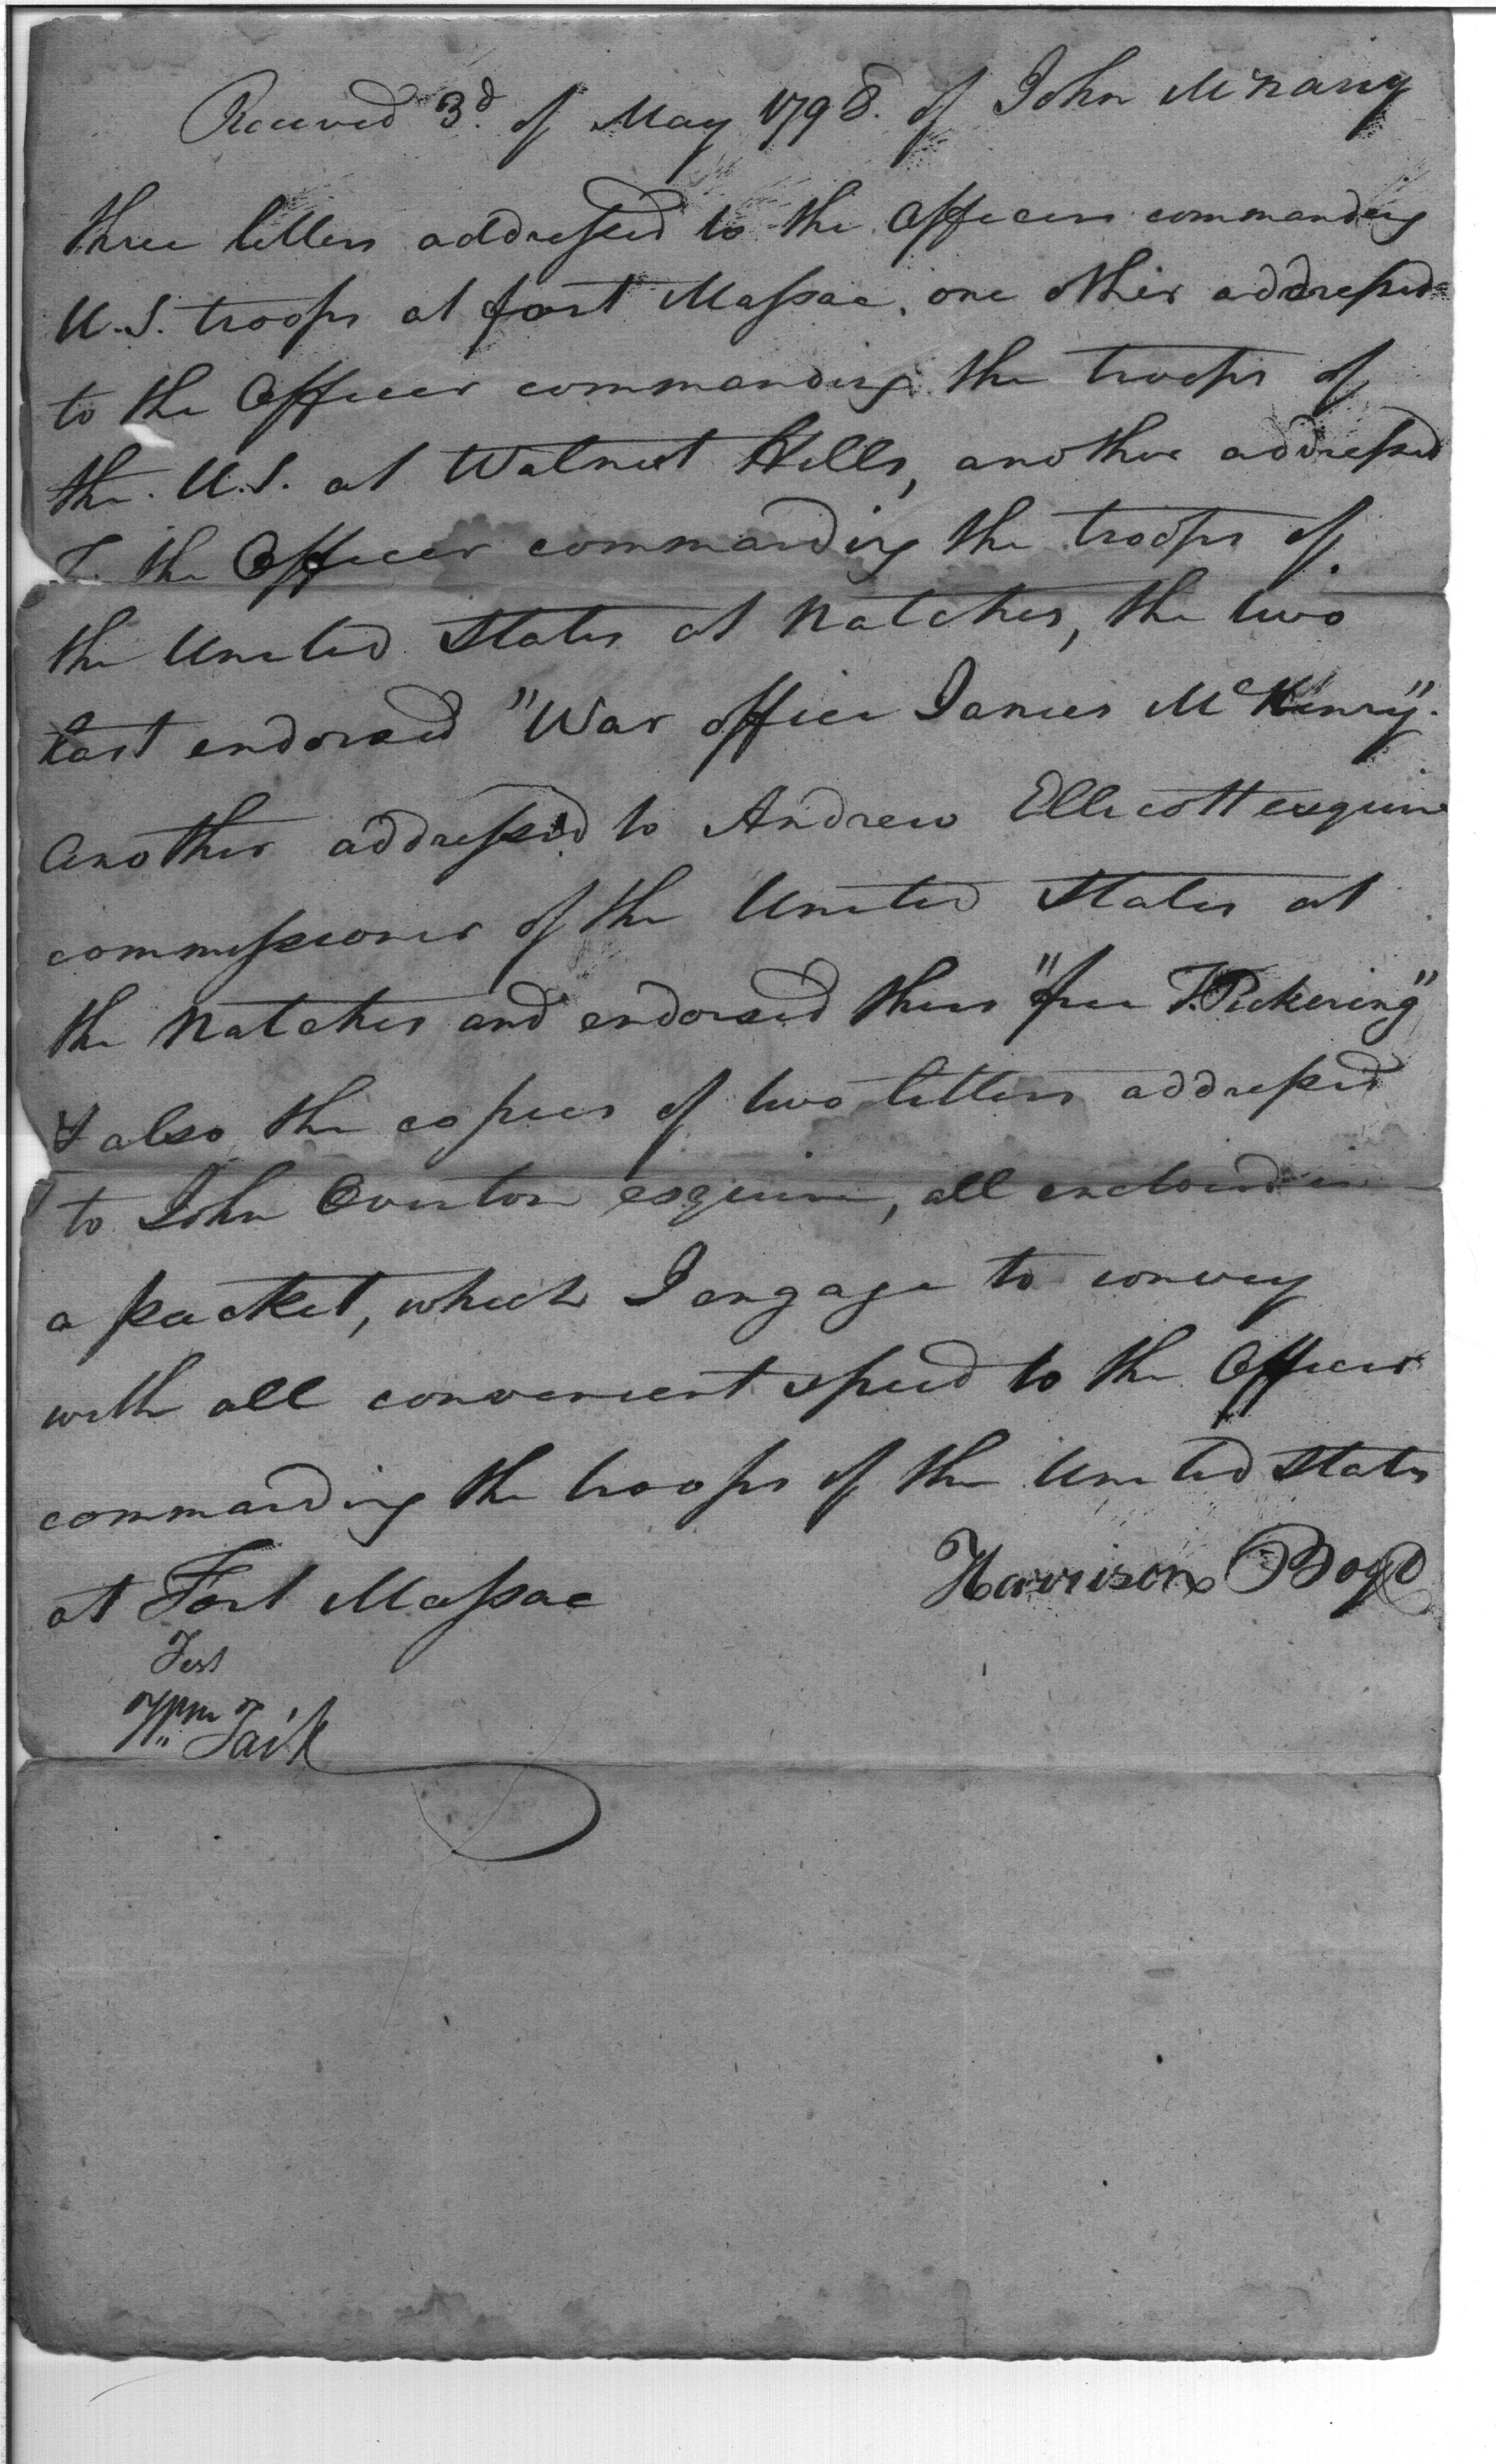 Received 3d. of May 1798. of John McNairy
three letters addressed to the Officers commanding
U.S. troops at fort Massac, one other addressed
to the Officer commanding the troops of
the U.S. at Walnut Hills, another addressed
To the Officer commanding the troops of
the United States at Natches, the two
last endorsed "War office James McHenry".
Another addressed to Andrew Ellicott esquire
commissioner of the United States at
the Natches and endorsed thus "free T. Pickering"
& also the copies of two letters addressed
to John Overton esquire, all enclosed in
a packet, which I engage to convey
with all convenient speed to the Officer
commanding the troops of the United States
at Fort Massac
Harrison Boyd
Test
Wm Tait